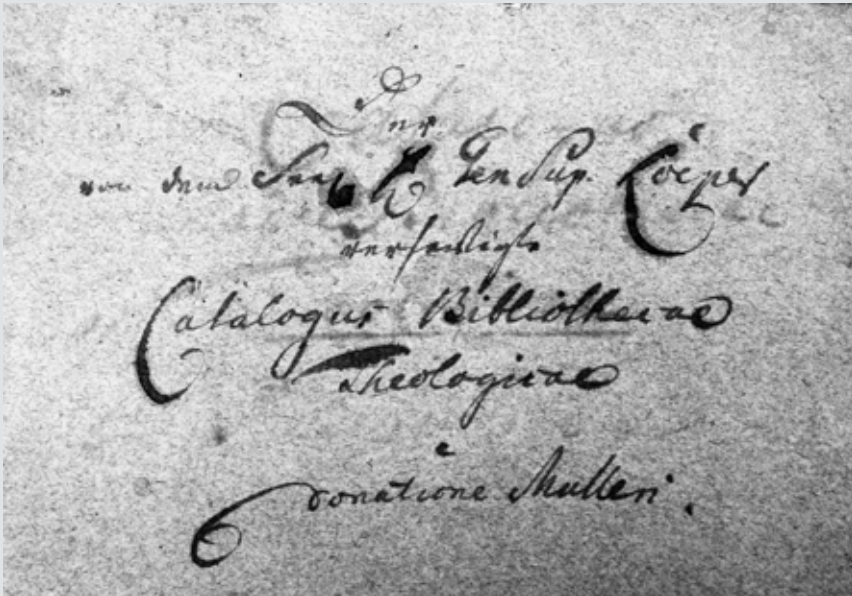 Der
von dem Gen Sup.
verfertigte
Catalogus Bibliothecae
Theologicae
e
donatione Mulleri.